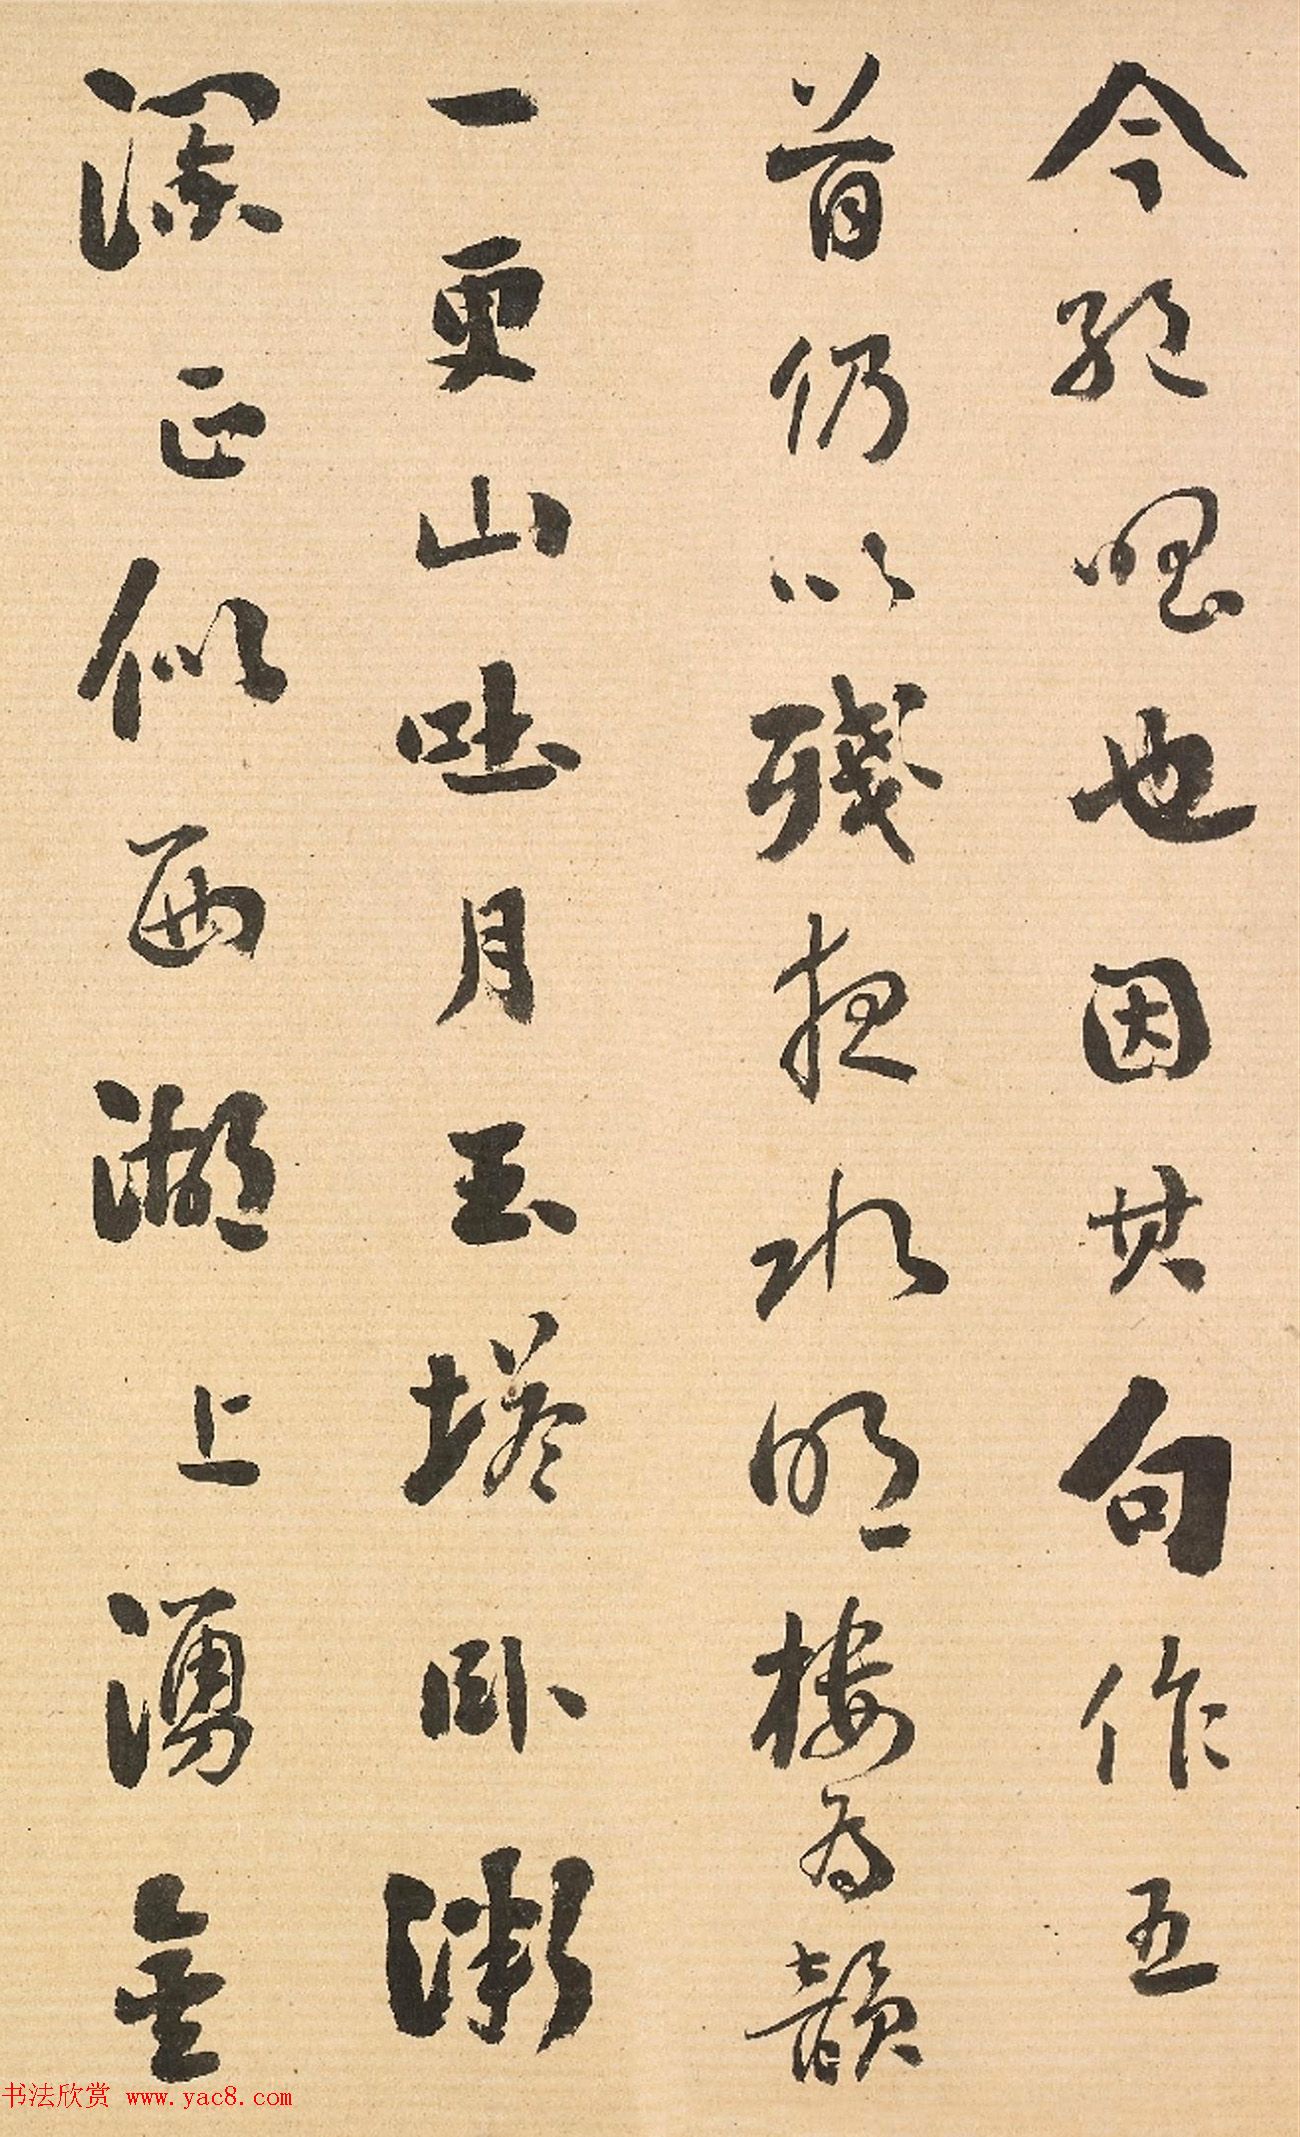 今絶唱也因其句作五
首仍以殘夜水明樓為韻
一更山吐月玉塔卧微
瀾正似西湖上湧金
书法欣赏 www.yac8.com